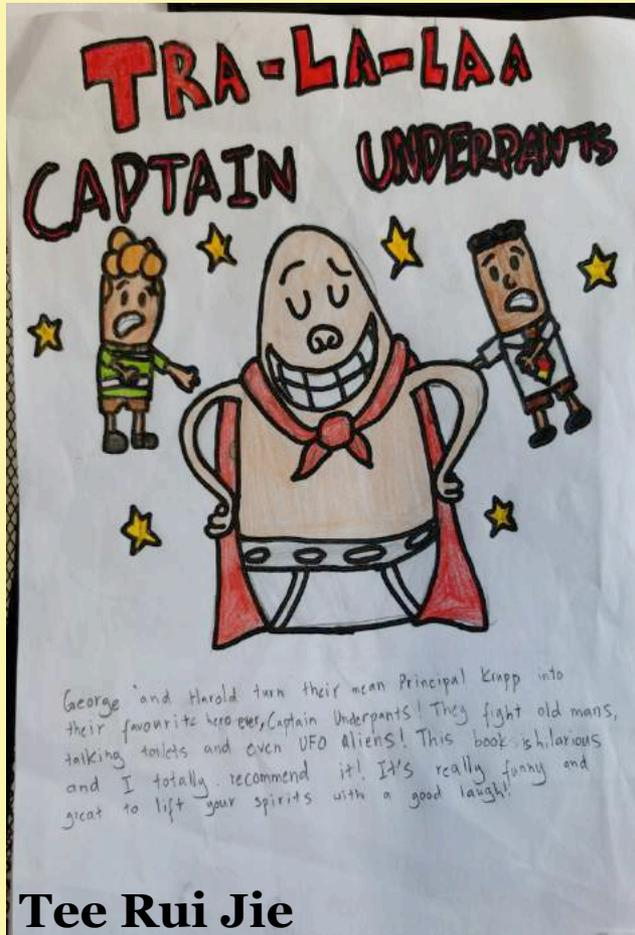 TRA-LA-LAA
CAPTAIN UNDERPANTS
George and Harold turn their mean Principal Krupp into
their favourite hero ever, Captain Underpants! They fight old mans,
talking toilets and even UFO Aliens! This book is hilarious
and I totally recommend it! It's really funny and
great to lift your spirits with a good laugh!
Tee Rui Jie